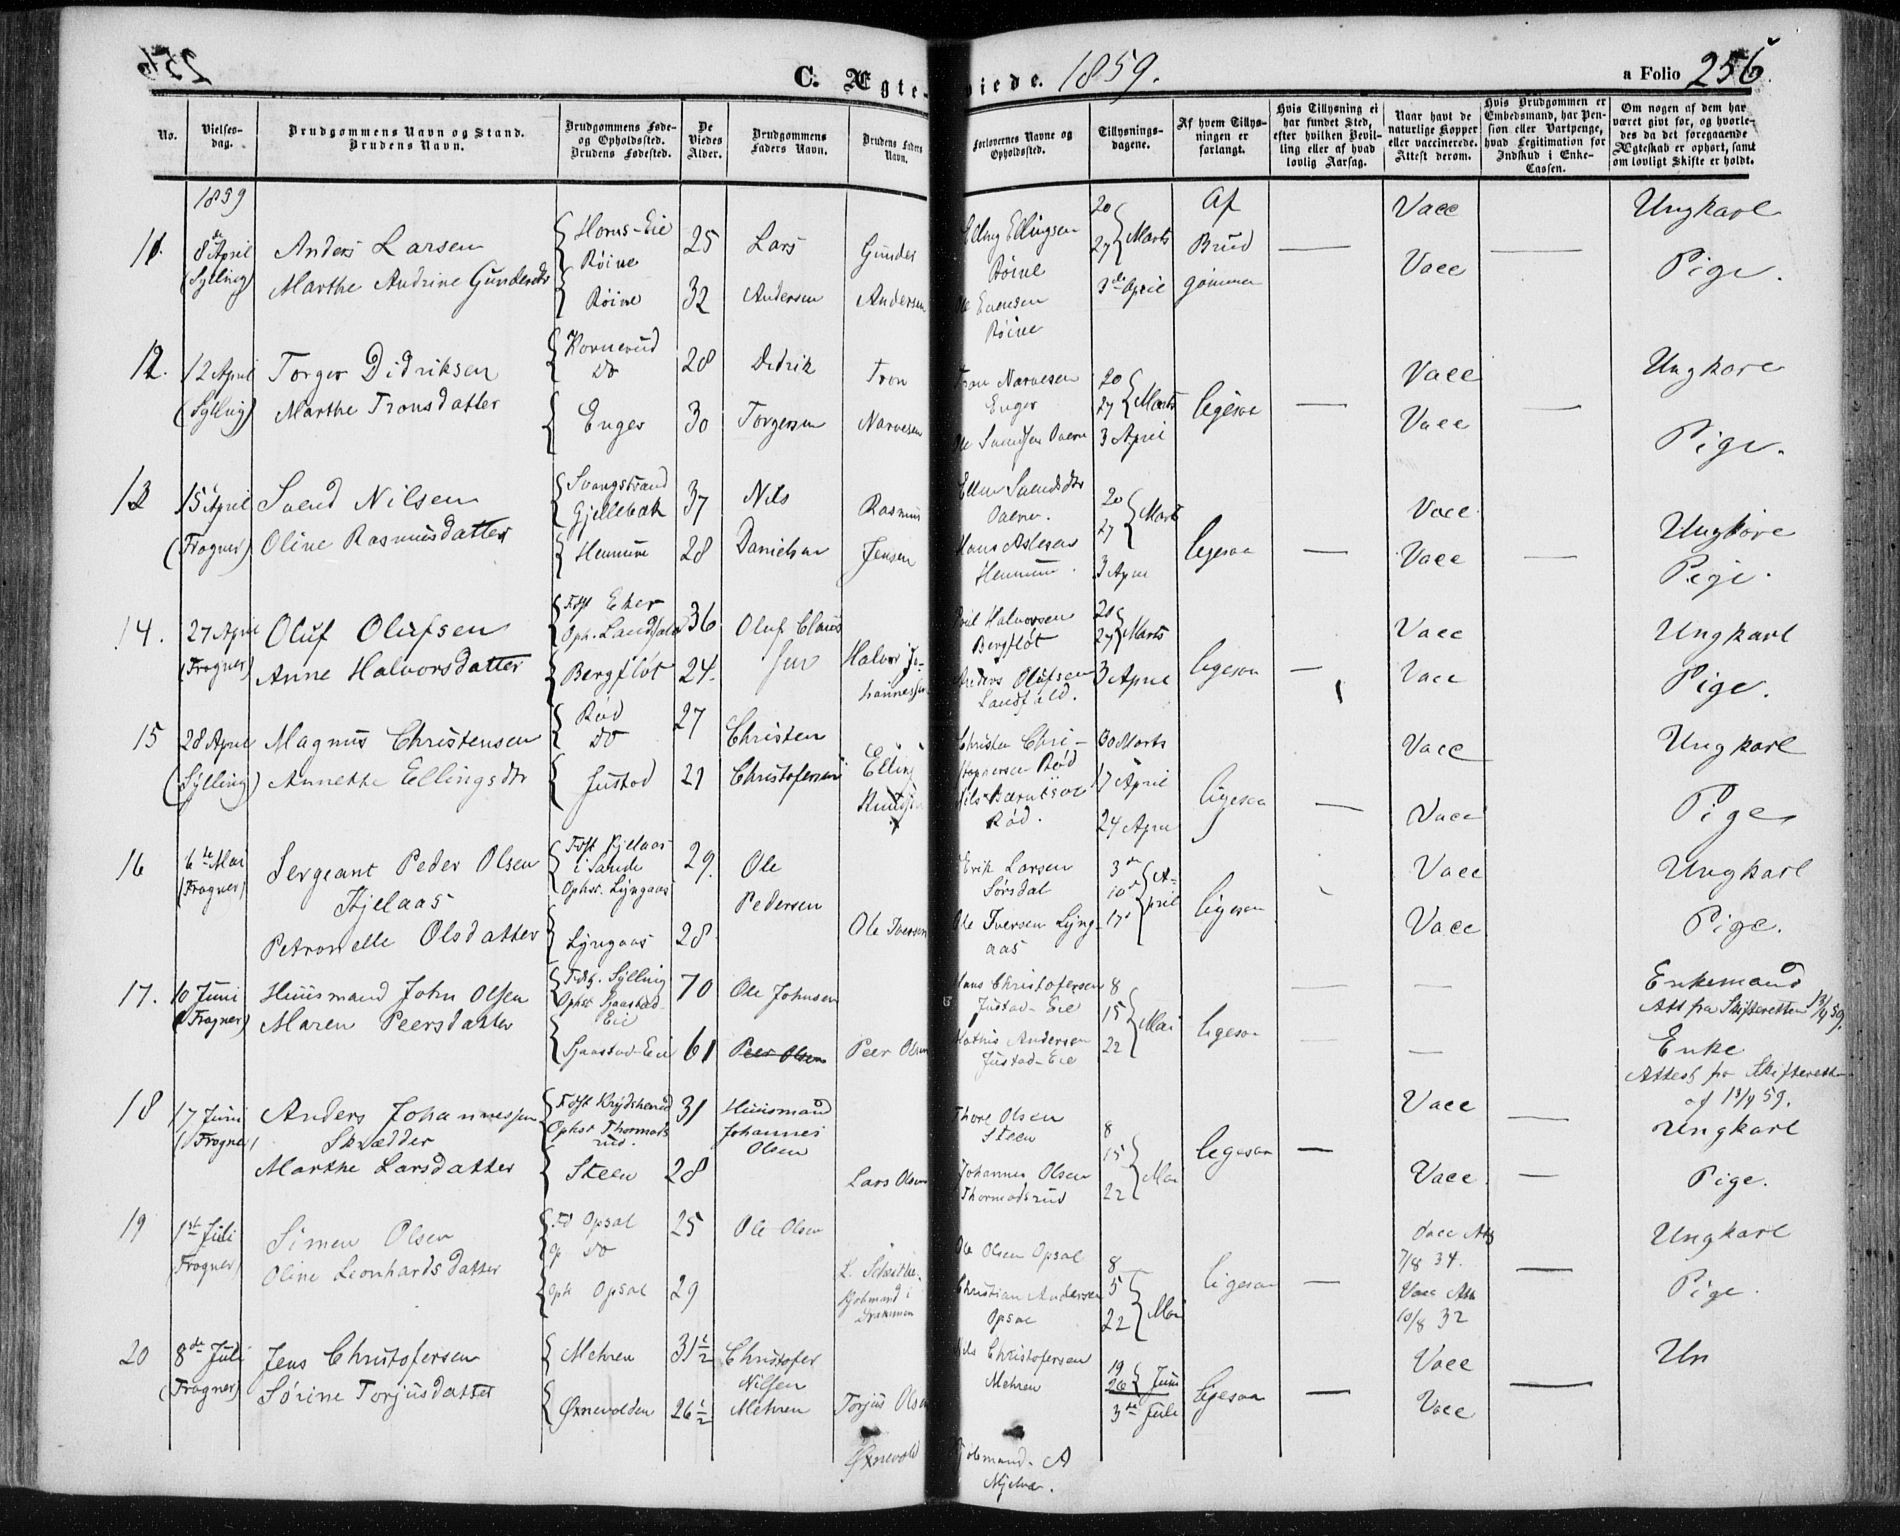 C. Ægteviede. 1859.
a Folio 256.
No.
Vielses-dag.
Brudgommens Navn og Stand. Brudens Navn.
Brudgommens Føde- og Opholdssted. Brudens Fødested.
De Viedes Alder.
Brudgommens Faders Navn.
Brudens Faders Navn.
Forlovernes Navne og Opholdssted.
Tillysnings-dagene.
Af hvem Tillysningen er forlangt.
Hvis Tillysning ei har fundet Sted, efter hvilken Bevilling eller af hvad lovlig Aarsag.
Naar havt de naturlige Kopper eller vaccinerede. Attest derom.
Hvis Brudgommen er Embedsmand, har Pension eller Vartpenge, hvad Legitimation for Indskud i Enke-Cassen.
Om nogen af dem har været givt for, og hvorledes da det foregaaende Ægteskab er ophørt, samt om lovligt Skifte er holdt.
1859
11. 8de April (Sylling) Anders Larsen Horns-Eie Røine 25 Lars Andersen Elling Ellingsen Røine 20 27 Marts 3de April Af Brudgommen Vacc Ungkarl
Marthe Andrine Gundersdtr Røine 32 Gunder Andersen Ole Evensen Røine Vacc Pige.
12. 12 April (Sylling) Torger Didriksen Kornerud Do 28 Didrik Torgersen Tron Narvesen Enger 20 27 Marts 3 April ligesaa Vacc Ungkare
Marthe Tronsdatter Enger 30 Tron Narvesen Vacc Pige.
13 15 April (Frogner) Svend Nilsen Svangstrand Gjellebæk 37 Nils Danielsen 20 27 Marts 3 April ligesaa Vacc Ungkare
Oline Rasmusdatter Hennum 28 Rasmus Jensen Hans Aslesen Hennum. Vacc Pige.
14. 27 April (Frogner) Oluf Olufsen Fdst Eker Oph. Landfald 36 Oluf Claussen Halvorsen Bergfløt 20 27 Marts 3 April ligesaa Vacc Ungkarl
Anne Halvorsdatter Bergfløt 24. Halvor Johannessen Anders Olufsen Landfald. Vacc Pige.
15 28 April (Sylling) Magnus Christensen Rød Do 27 Christen Christofersen Christen Christophersen Rød 30 Marts 17 April 24 April ligesaa Vacc Ungkarl
Annethe Ellingsdtr Justad 21 Elling Knudsen Nils Bærntsen Rød. Vacc Pige
16 6te Mai (Frogner) Sergeant Peder Olsen Kjelaas Fdst Kjelaas i Sande Ophst. Lyngaas 29. Ole Pedersen Erik Larsen Sørsdal 3de 10de 17de April ligesaa Vacc Ungkarl
Petronelle Olsdatter Lyngaas 28 Ole Iversen Ole Iversen Lyngaas Vacc Pige.
17. 10 Juni (Frogner) Huusmand John Olsen Fdst. Sylling Ophst Sjaastad-Eie 70 Ole Johnsen Hans Christofersen Justad-Eie 8 15 22 Mai ligesaa Enkemand Att fra Skifteretten 13/4 59.
Maren Peersdatter Sjaastad-Eie 61 Peer Olsen Peer Olsen Mathis Andersen Justad-Eie Enke Attest fra Skifteretten af 13/4 59.
18 17 Juni (Frogner) Anders Johannessen Skrædder Fdst Krydsherud Ophst Thormodsrud. 31 Huusmand Johannes Olsen Thore Olsen Steen 8 15 22 Mai ligesaa Vacc Ungkarl
Marthe Larsdatter Steen 28 Lars Olsen Johannes Olsen Thormodsrud Vacc Pige.
19 1ste Juli (Frogner) Simen Olsen Fd Opsal Op Do 25 Ole Olsen Ole Olsen Opsal 8 5 22 Mai ligesaa Vacc Att 7/8 34. Ungkarl
Oline Leonhardsdatter Oph Opsal 29 L. Kjøbmand i Drammen Christian Andersen Opsal Vacc Att 10/8 32 Pige.
20 8de Juli (Frogner) Jens Christofersen Mehren 31 1/2 Christofer Nilsen Mehren Nils Christofersen Mehren 19 26 Juni 3de Juli ligesaa Vacc Un
Sørine Torjusdatter Øxnevolden 26 1/2 Torjus Olsen Øxnevold Kjøbmand. A Mjelva. Vacc